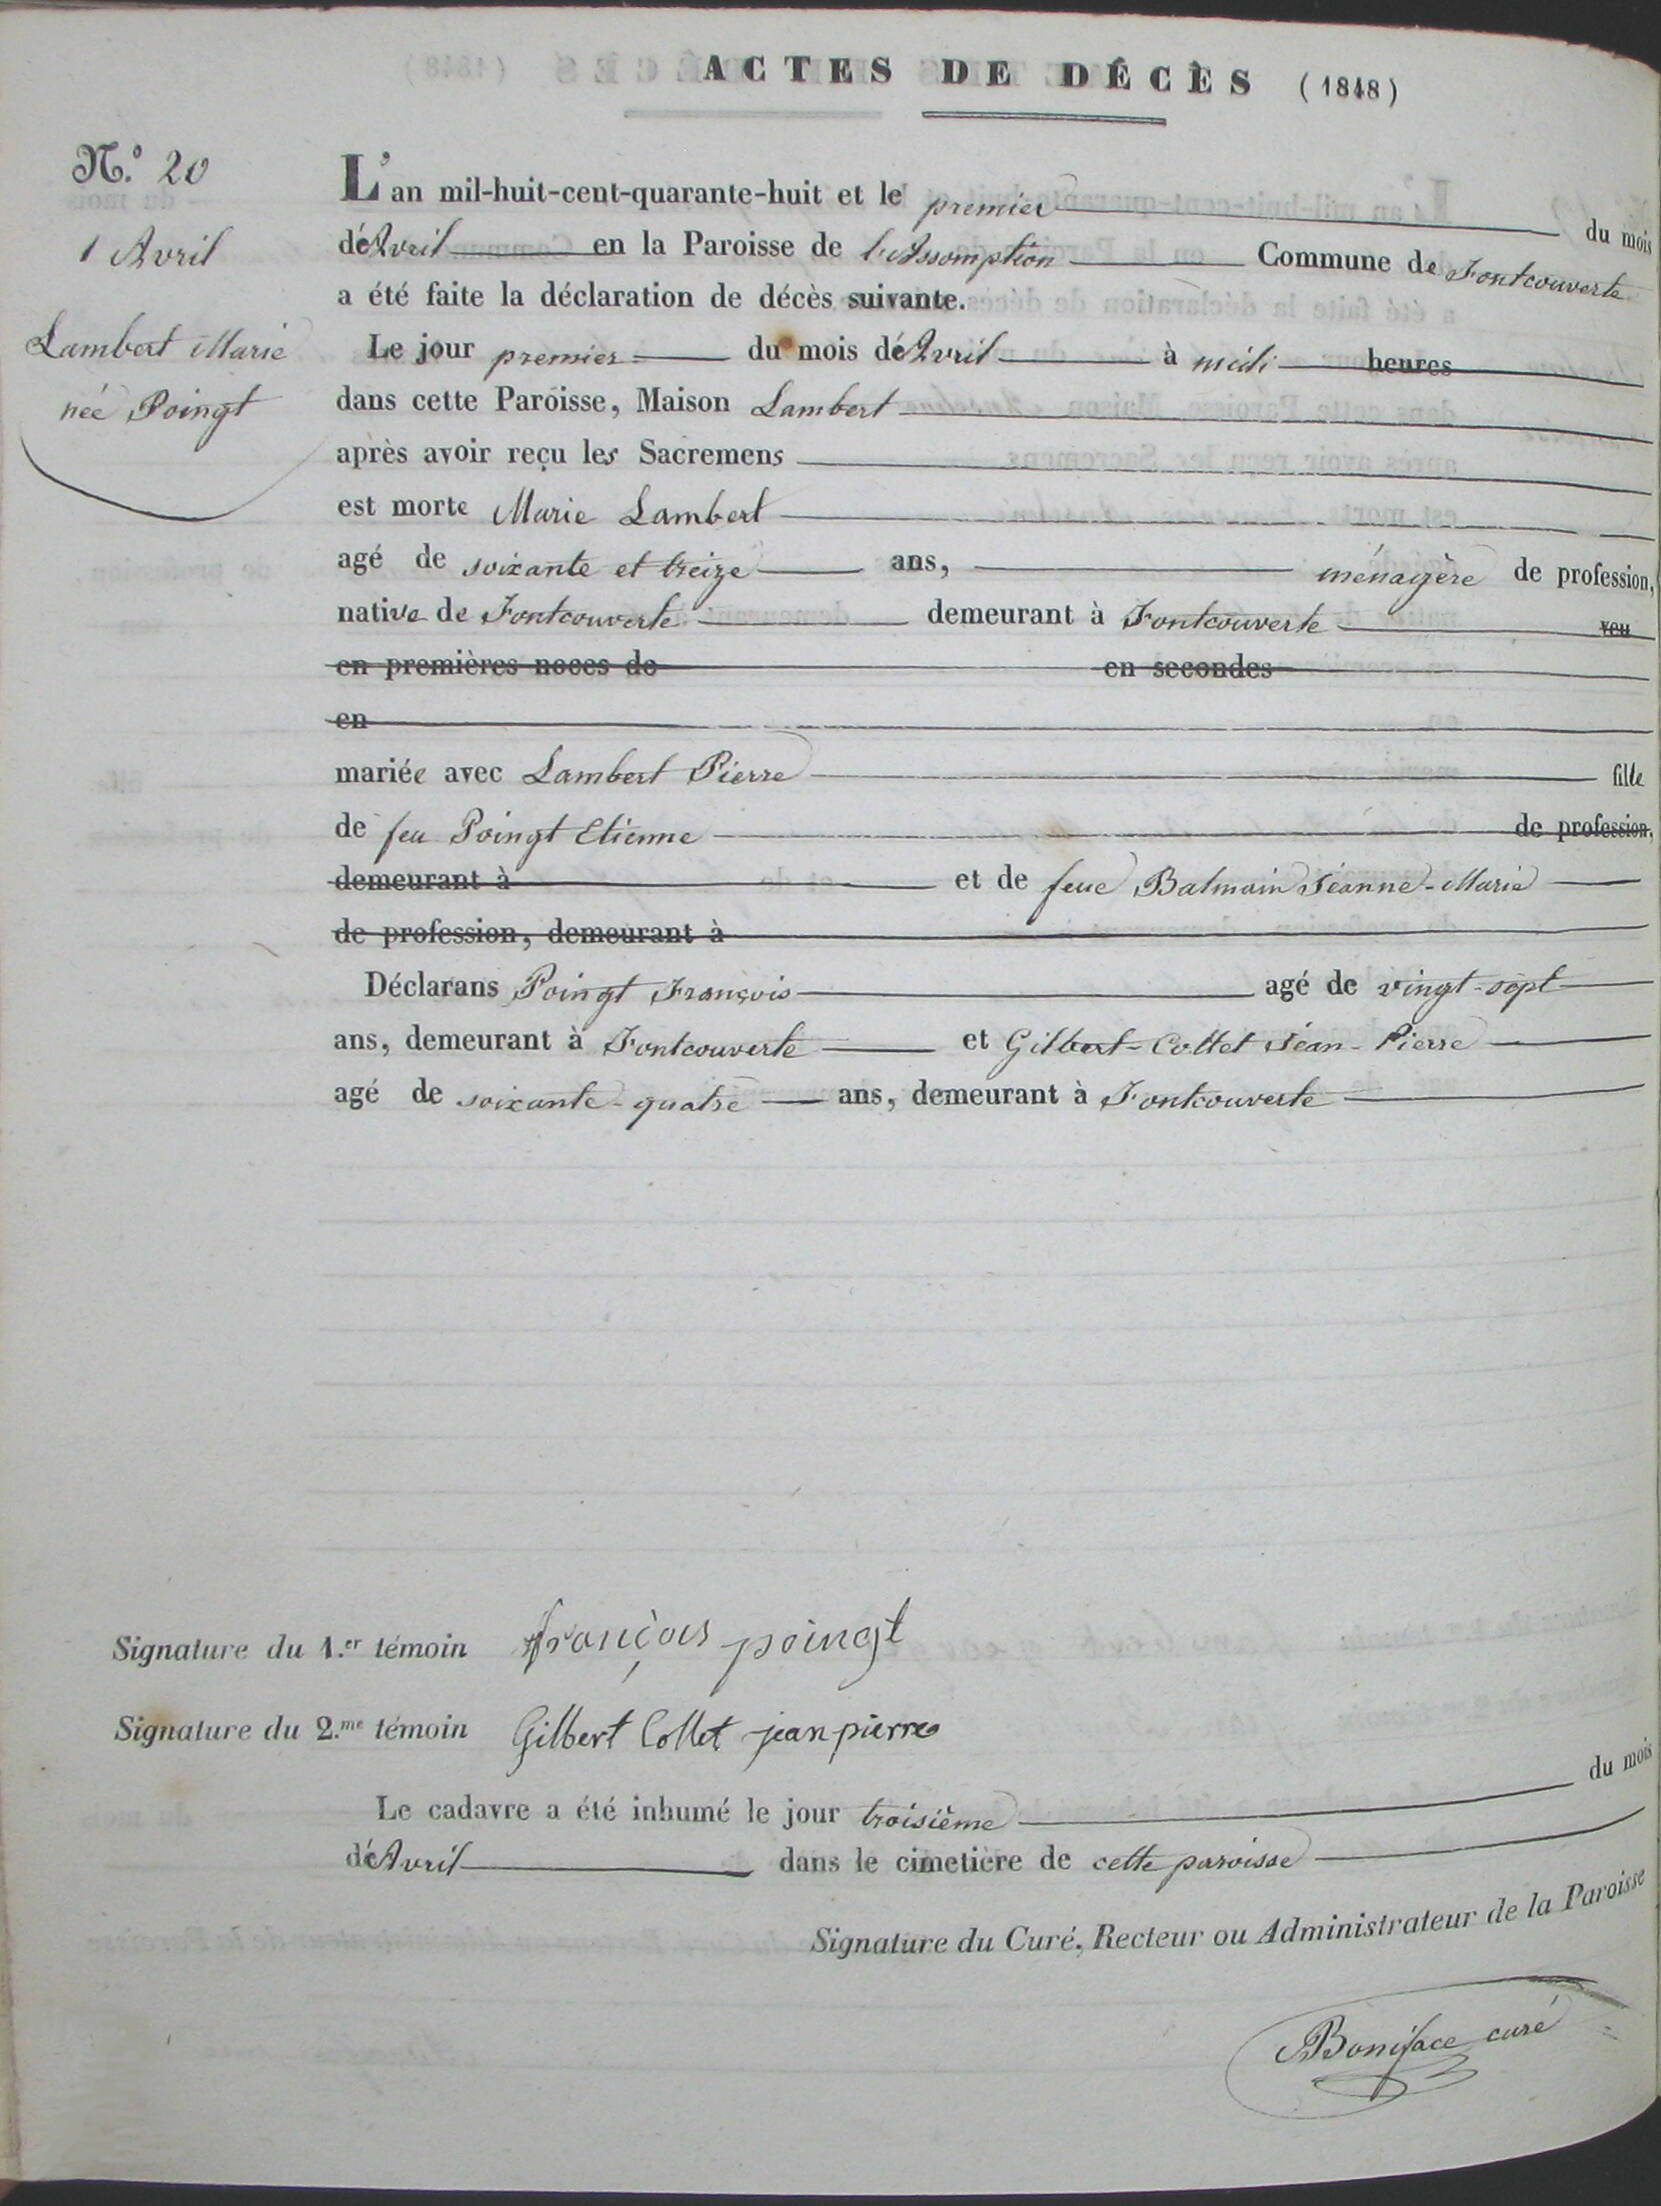 ACTES DE DÉCÈS (1848)
N.º 20
1 Avril
Lambert Marie
née Poingt
L'an mil-huit-cent-quarante-huit et le premier du mois
d'Avril en la Paroisse de l'Assomption Commune de Fontcouverte
a été faite la déclaration de décès suivante.
Le jour premier du mois d'Avril à midi heures
dans cette Paroisse, Maison Lambert
après avoir reçu les Sacremens
est morte Marie Lambert
agé de soixante et treize ans, ménagère de profession,
native de Fontcouverte demeurant à Fontcouverte veu
en premières noces de en secondes
en
mariée avec Lambert Pierre fille
de feu Poingt Etienne de profession,
demeurant à et de feue Balmain Jéanne-Marie
de profession, demeurant à
Déclarans Poingt François agé de vingt-sept
ans, demeurant à Fontcouverte et Gilbert-Collet Jéan-Pierre
agé de soixante-quatre ans, demeurant à Fontcouverte
Signature du 1.er témoin françois poingt
Signature du 2.me témoin Gilbert Collet jean pierre
Le cadavre a été inhumé le jour troisième du mois
d'Avril dans le cimetière de cette paroisse
Signature du Curé, Recteur ou Administrateur de la Paroisse
Boniface curé